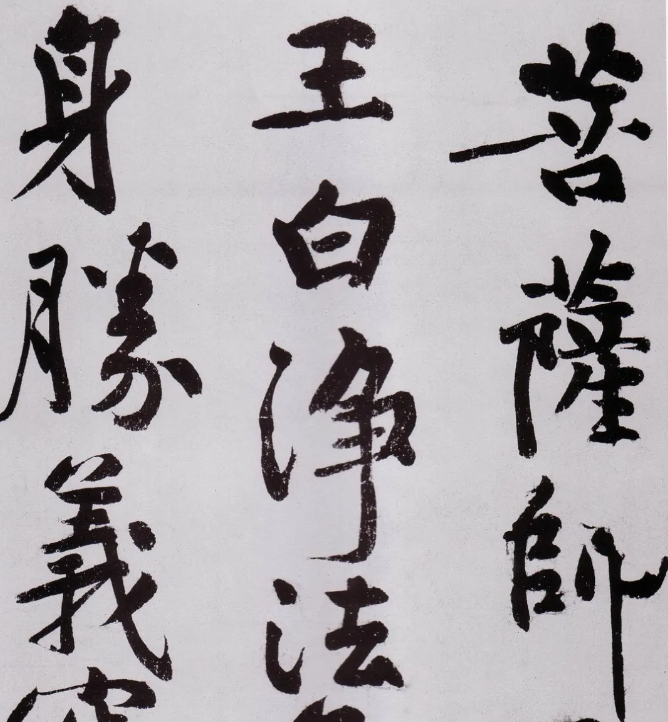 菩薩師
王白净法
身勝義